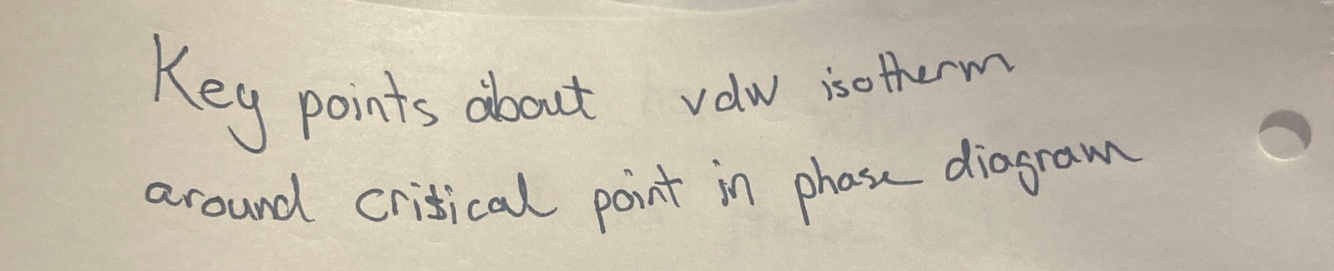 Key points about vdw isotherm
around critical point in phase diagram